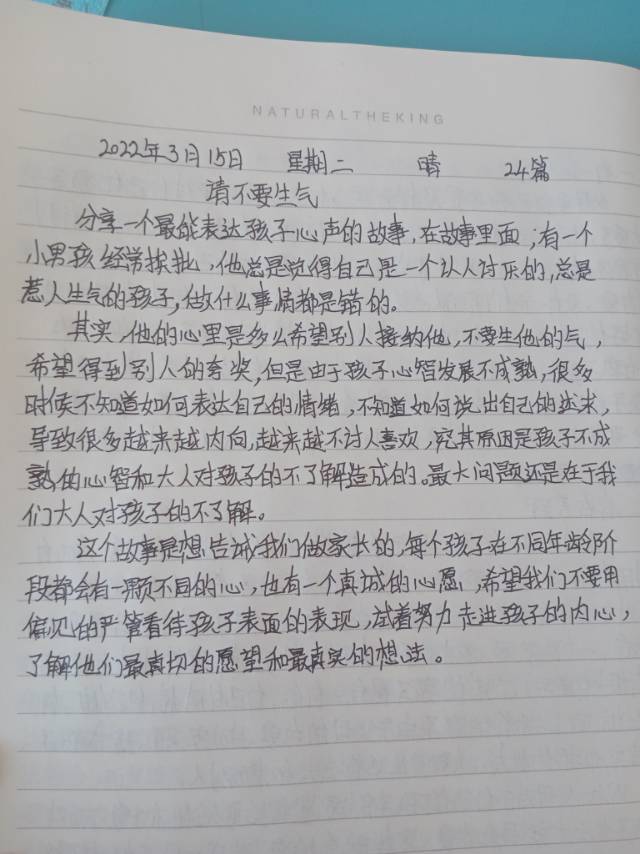 NATURALTHEKING
2022年3月15日 星期二 晴 24篇
请不要生气
分享一个最能表达孩子心声的故事,在故事里面;有一个
小男孩经常挨批,他总是觉得自己是一个认人讨乐的,总是
惹人生气的孩子,做什么事情都是错的。
其实,他的心里是多么希望别人接纳他,不要生他的气,
希望得到别人的夸奖,但是由于孩子心智发展不成熟,很多
时候不知道如何表达自己的情绪,不知道如何说出自己的诉求,
导致很多越来越内向,越来越不讨人喜欢,究其原因是孩子不成
熟的心智和大人对孩子的不了解造成的。最大问题还是在于我
们大人对孩子的不了解。
这个故事是想告诫我们做家长的,每个孩子在不同年龄阶
段都会有一颗不同的心,也有一个真诚的心愿,希望我们不要用
偏见的严管看待孩子表面的表现,试着努力走进孩子的内心,
了解他们最真切的愿望和最真实的想法。